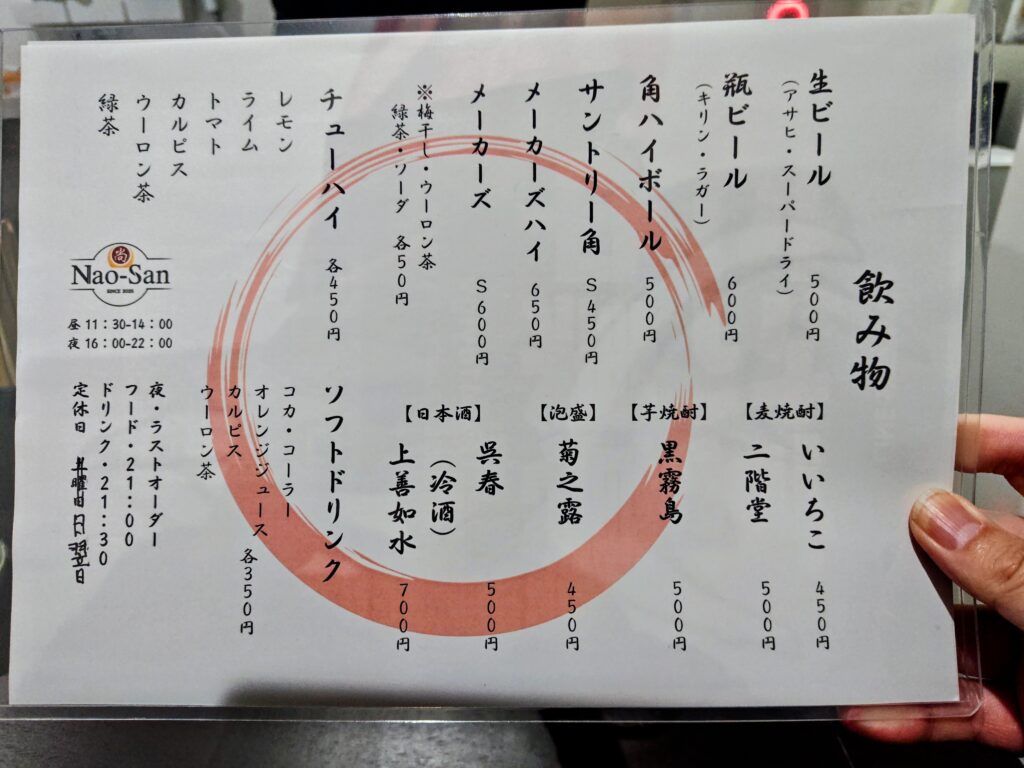 飲み物
生ビール 500円
(アサヒ・スーパードライ)
瓶ビール 600円
(キリン・ラガー)
角ハイボール 500円
サントリー角 S 450円
メーカーズハイ 650円
メーカーズ S 600円
※梅干し・ウーロン茶
緑茶・ソーダ 各50円
チューハイ 各450円
レモン
ライム
トマト
カルピス
ウーロン茶
緑茶
【麦焼酎】
いいちこ 450円
二階堂 500円
【芋焼酎】
黒霧島 500円
【泡盛】
菊之露 450円
【日本酒】
呉春 500円
(冷酒)
上善如水 700円
ソフトドリンク
コカ・コーラ
オレンジジュース 各350円
カルピス
ウーロン茶
尚
Nao-San
SINCE 2025
昼 11:30-14:00
夜 16:00-22:00
夜・ラストオーダー
フード・21:00
ドリンク・21:30
定休日